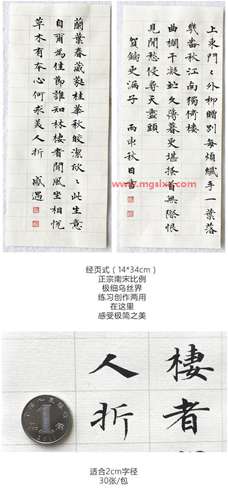 蘭葉春葳蕤桂華秋皎潔欣〻此生意
自爾為佳節誰知林棲者聞風坐相悅
草木有本心何求美人折 感遇
上東門〻外柳贈別每煩纖手一葉落
幾番秋江南獨倚樓
曲欄干凝竚久薄暮更堪搔首無際恨
見閒愁侵尋天盡頭
賀鑄更漏子 秋日書
经页式（14*34cm）
正宗南宋比例
极细乌丝界
练习创作两用
在这里
感受极简之美
棲者
人折
1
适合2cm字径
30张/包